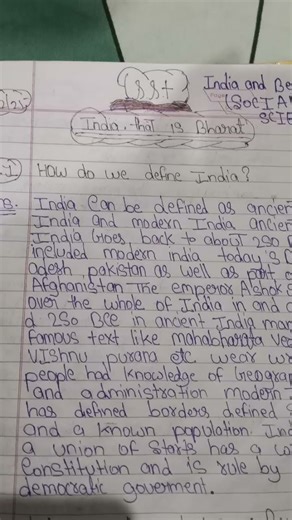 2/25
SST
India and Be
(SOCIA
SCIE
India, that is Bharat
1 How do we define India?
s. India can be defined as ancien
India and modern India ancien
India Goes, back to about 250 B
included modern india today's
adesh, pakistan as well as part o
Afghanistan The emperor Ashok
over the whole of India in and
d 250 BCE in ancient India man
famous text like mahabharata ved
Vishnu purana etc wear wr
people had knowledge of Geograp
and administration modern
has defined borders defined
and a known population. Ind
a union of Starts has a
Constitution and is rule by
democratic goverment.